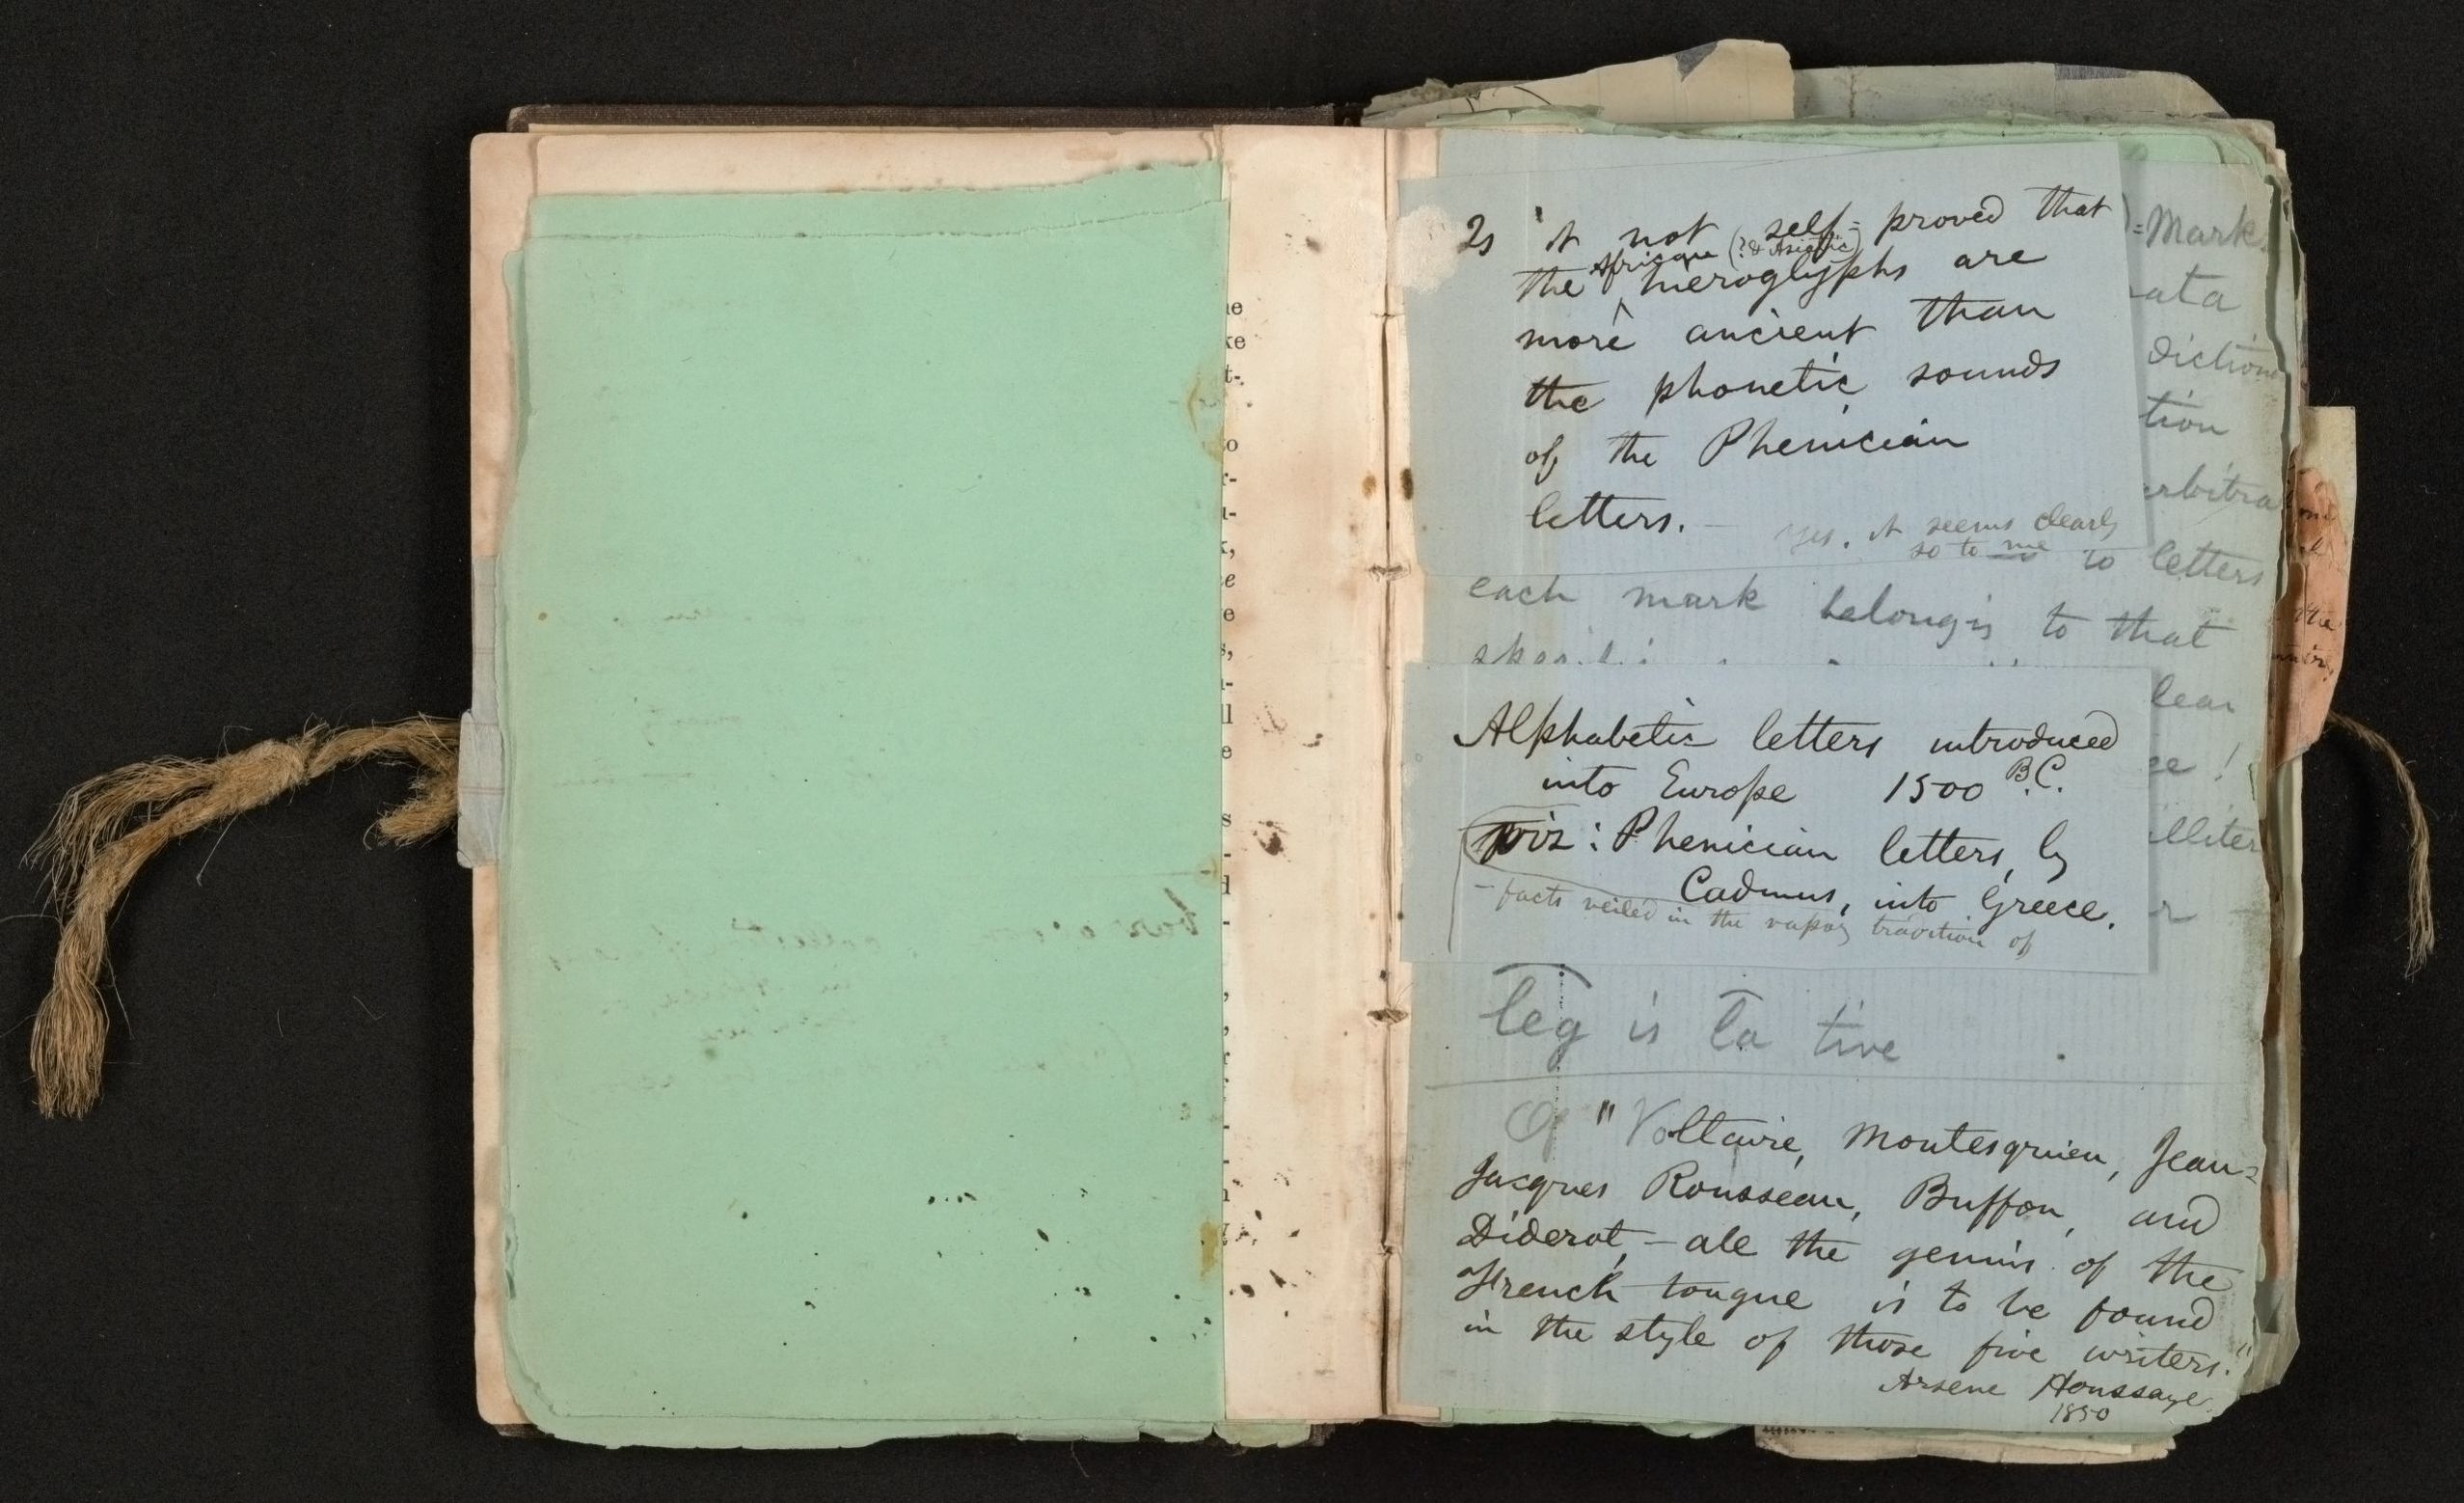 Is it not self-proved that
African (? & Asiatic)
the hieroglyphs are
more ancient than
the phonetic sounds
of the Phenician
letters. —
yes, it seems clearly
so to me
=Mark
ata
diction
tion
arbitra
to letters
each mark belongs to that
lear
ee!
illiter
Alphabetic letters introduced
into Europe 1500 B.C.
viz: Phenician letters, by
Cadmus, into Greece.
- facts veiled in the vapory tradition of
leg is la tive
Of "Voltaire, Montesquieu, Jean=
Jacques Rousseau, Buffon, and
Diderot, — all the genius of the
French tongue is to be found
in the style of those five writers."
Arsene Houssaye
1850